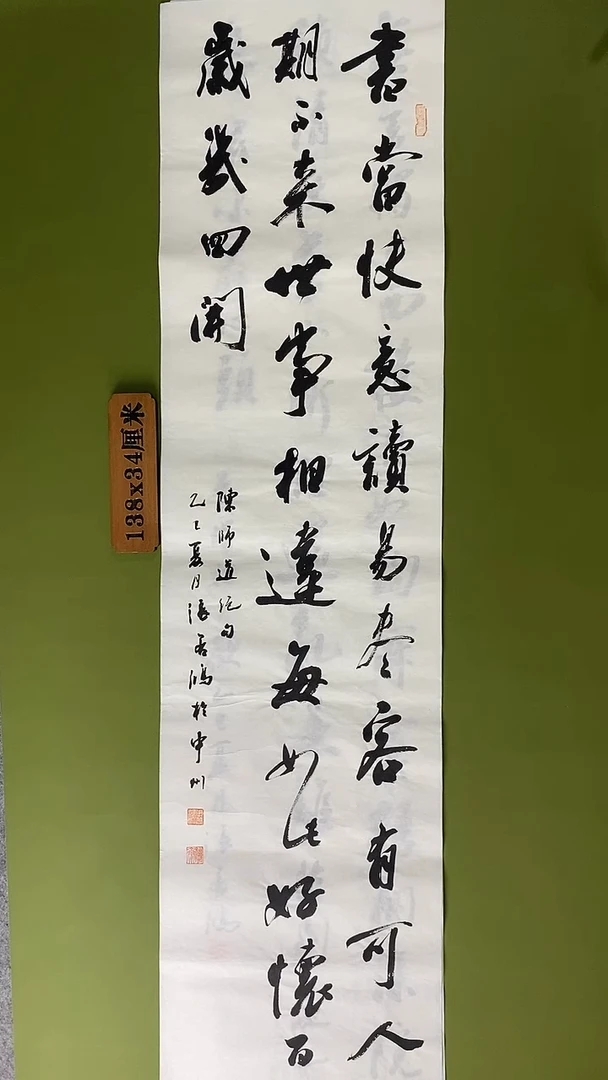 書當快意讀易盡客有可人
期不来世事相違每如此好懷百
歲幾回開
陳師道絕句
乙巳夏月張鴻於申州
138x34厘米